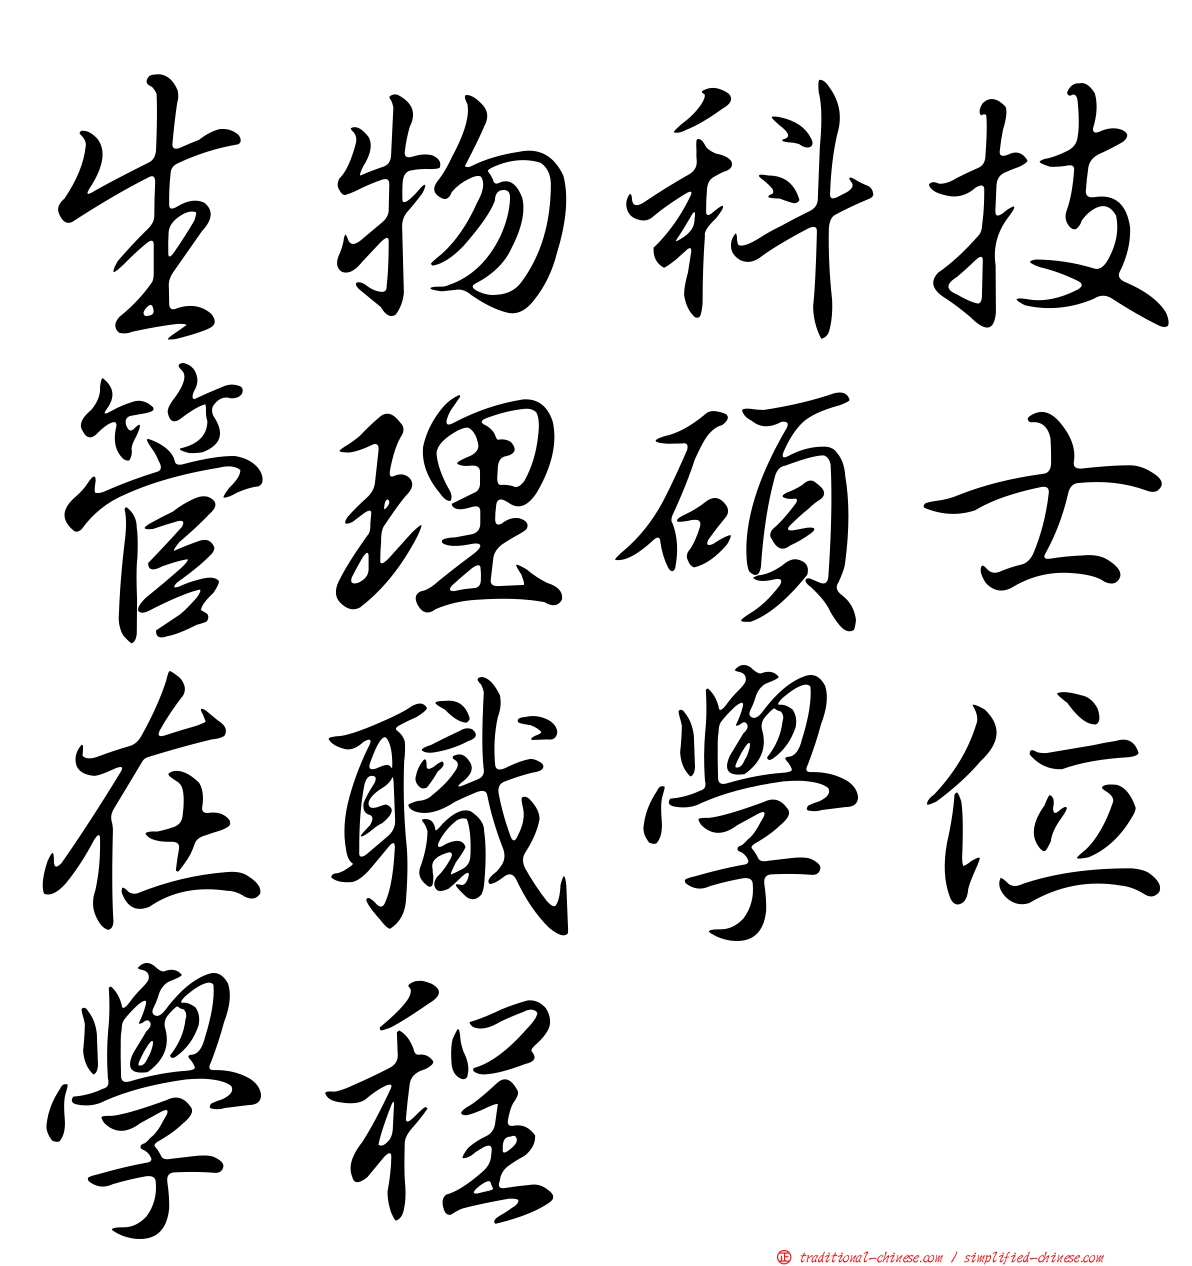 生物科技
管理碩士
在職學位
學程
正 traditional-chinese.com / simplified-chinese.com